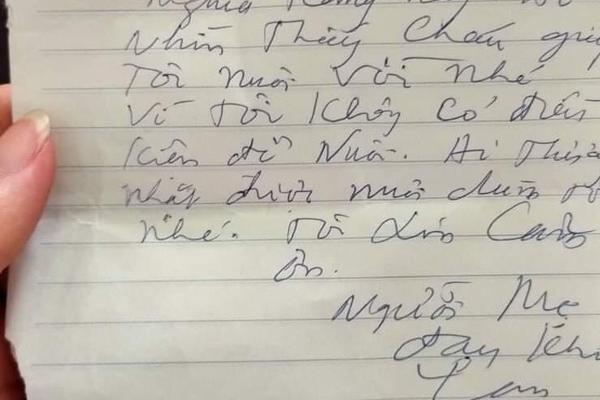 Nhìn Thấy Cháu giúp
Tôi nuôi Với Nhé
Vì Tôi Không Có điều
Kiện để Nuôi. Ai Thấy
nhặt được nuôi dùm
Nhé. Tôi Xin Cảm
ơn.
Người Mẹ
đau khổ